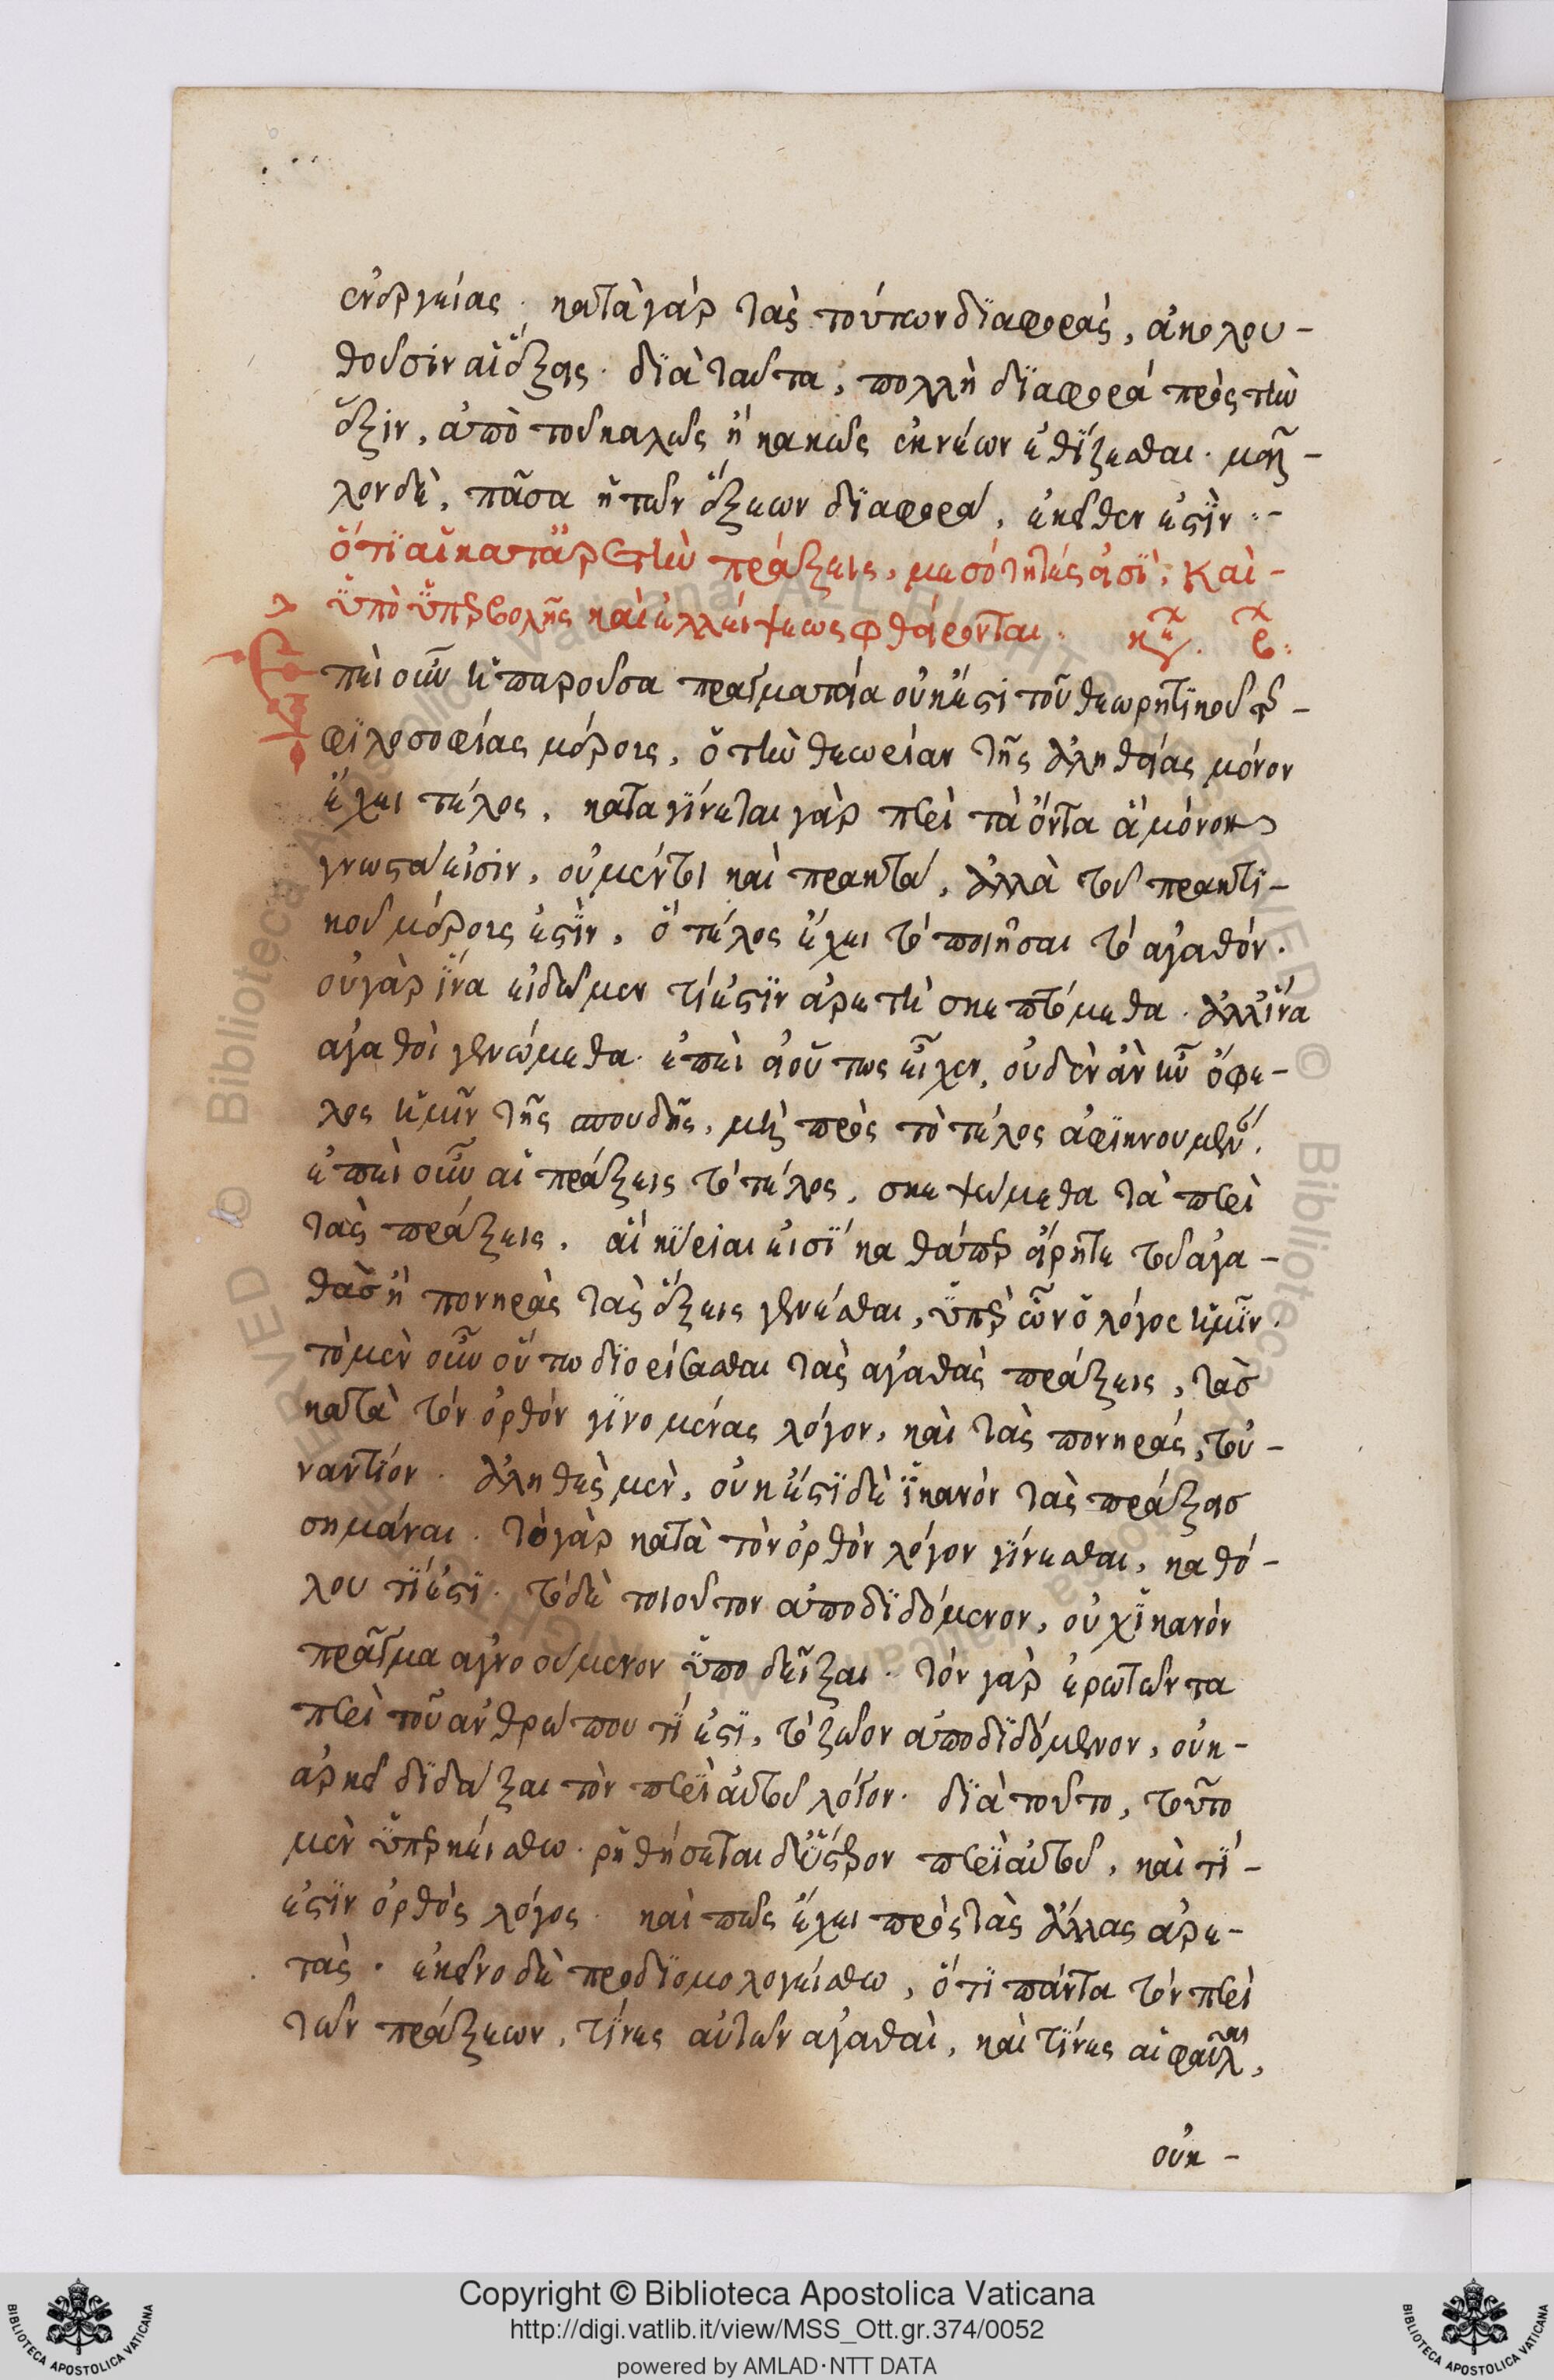 ἐνεργείας. κατὰ γὰρ τὰς τούτων διαφορὰς, ἀκολου-
θοῦσιν αἱ ἕξεις. διὰ ταῦτα, πολλὴ διαφορά πρὸς τὴν
ἕξιν, ἀπὸ τοῦ καλῶς ἢ κακῶς ἐκ νέων ἐθίζεσθαι. μᾶλ-
λον δὲ, πᾶσα ἡ τῶν ἕξεων διαφορά, ἐκεῖθεν ἐστὶν :-
ὅτι αἱ κατ' ἀρετὴν πράξεις, μεσότητές εἰσι, καὶ-
ὑπὸ ὑπερβολῆς καὶ ἐλλείψεως φθείρονται. κεφ. β:
Ἐπεὶ οὖν ἡ παροῦσα πραγματεία οὐκ ἔστι τοῦ θεωρητικοῦ τῆς-
φιλοσοφίας μέρους, ὃ τὴν θεωρίαν τῆς ἀληθείας μόνον
ἔχει τέλος, καταγίνεται γὰρ περὶ τὰ ὄντα ἃ μόνον
γνωστά εἰσιν, οὐ μέντοι καὶ πρακτά, ἀλλὰ τοῦ πρακτι-
κοῦ μέρους ἐστὶν, ὃ τέλος ἔχει τὸ ποιῆσαι τὸ ἀγαθόν.
οὐ γὰρ ἵνα εἰδῶμεν τί ἐστιν ἀρετὴ σκεπτόμεθα. ἀλλ' ἵνα
ἀγαθοὶ γενώμεθα. ἐπεὶ εἰ οὕτως εἶχεν, οὐδὲν ἂν ἦν ὄφε-
λος ἡμῖν τῆς σπουδῆς, μὴ πρὸς τὸ τέλος ἀφικνουμένης.
ἐπεὶ οὖν αἱ πράξεις τὸ τέλος, σκεψώμεθα τὰ περὶ
τὰς πράξεις, αἳ κύριαι εἰσί καθάπερ εἴρηται τοῦ ἀγα-
θὰς ἢ πονηρὰς τὰς ἕξεις γενέσθαι, ὑπὲρ ὧν ὁ λόγος ἡμῖν.
τὸ μὲν οὖν οὕτω διορίσασθαι τὰς ἀγαθὰς πράξεις, τὰς
κατὰ τὸν ὀρθὸν γινομένας λόγον, καὶ τὰς πονηρὰς, τοὐ-
ναντίον. ἀληθὲς μὲν, οὐκ ἔστι δὲ ἱκανὸν τὰς πράξεις
σημάναι. τὸ γὰρ κατὰ τὸν ὀρθὸν λόγον γίνεσθαι, καθό-
λου τί ἐστι. τὸ δὲ τοιοῦτον ἀποδιδόμενον, οὐχ ἱκανὸν
πρᾶγμα ἀγνοούμενον ὑποδεῖξαι. τὸν γὰρ ἐρωτῶντα
περὶ τοῦ ἀνθρώπου τί ἐστι, τὸ ζῶον ἀποδιδόμενον, οὐκ-
ἀρκεῖ διδάξαι τὸν περὶ αὐτοῦ λόγον. διὰ τοῦτο, τοῦτο
μὲν ὑπερκείσθω. ῥηθήσεται δ' ὕστερον περὶ αὐτοῦ, καὶ τί-
ἐστιν ὀρθὸς λόγος. καὶ πῶς ἔχει πρὸς τὰς ἄλλας ἀρε-
τὰς. ἐκεῖνο δὲ προδιομολογείσθω, ὅτι πάντα τὸν περὶ
τῶν πράξεων, τίνες αὐτῶν ἀγαθαὶ, καὶ τίνες αἱ φαῦλαι,
οὐκ-
Copyright © Biblioteca Apostolica Vaticana
http://digi.vatlib.it/view/MSS_Ott.gr.374/0052
powered by AMLAD·NTT DATA